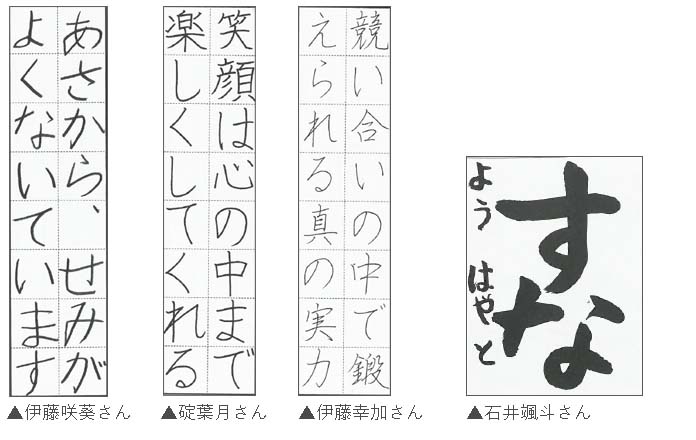 あさから、せみが
よくないています
▲伊藤咲葵さん
笑顔は心の中まで
楽しくしてくれる
▲碇葉月さん
競い合いの中で鍛
えられる真の実力
▲伊藤幸加さん
すな
よう はやと
▲石井颯斗さん